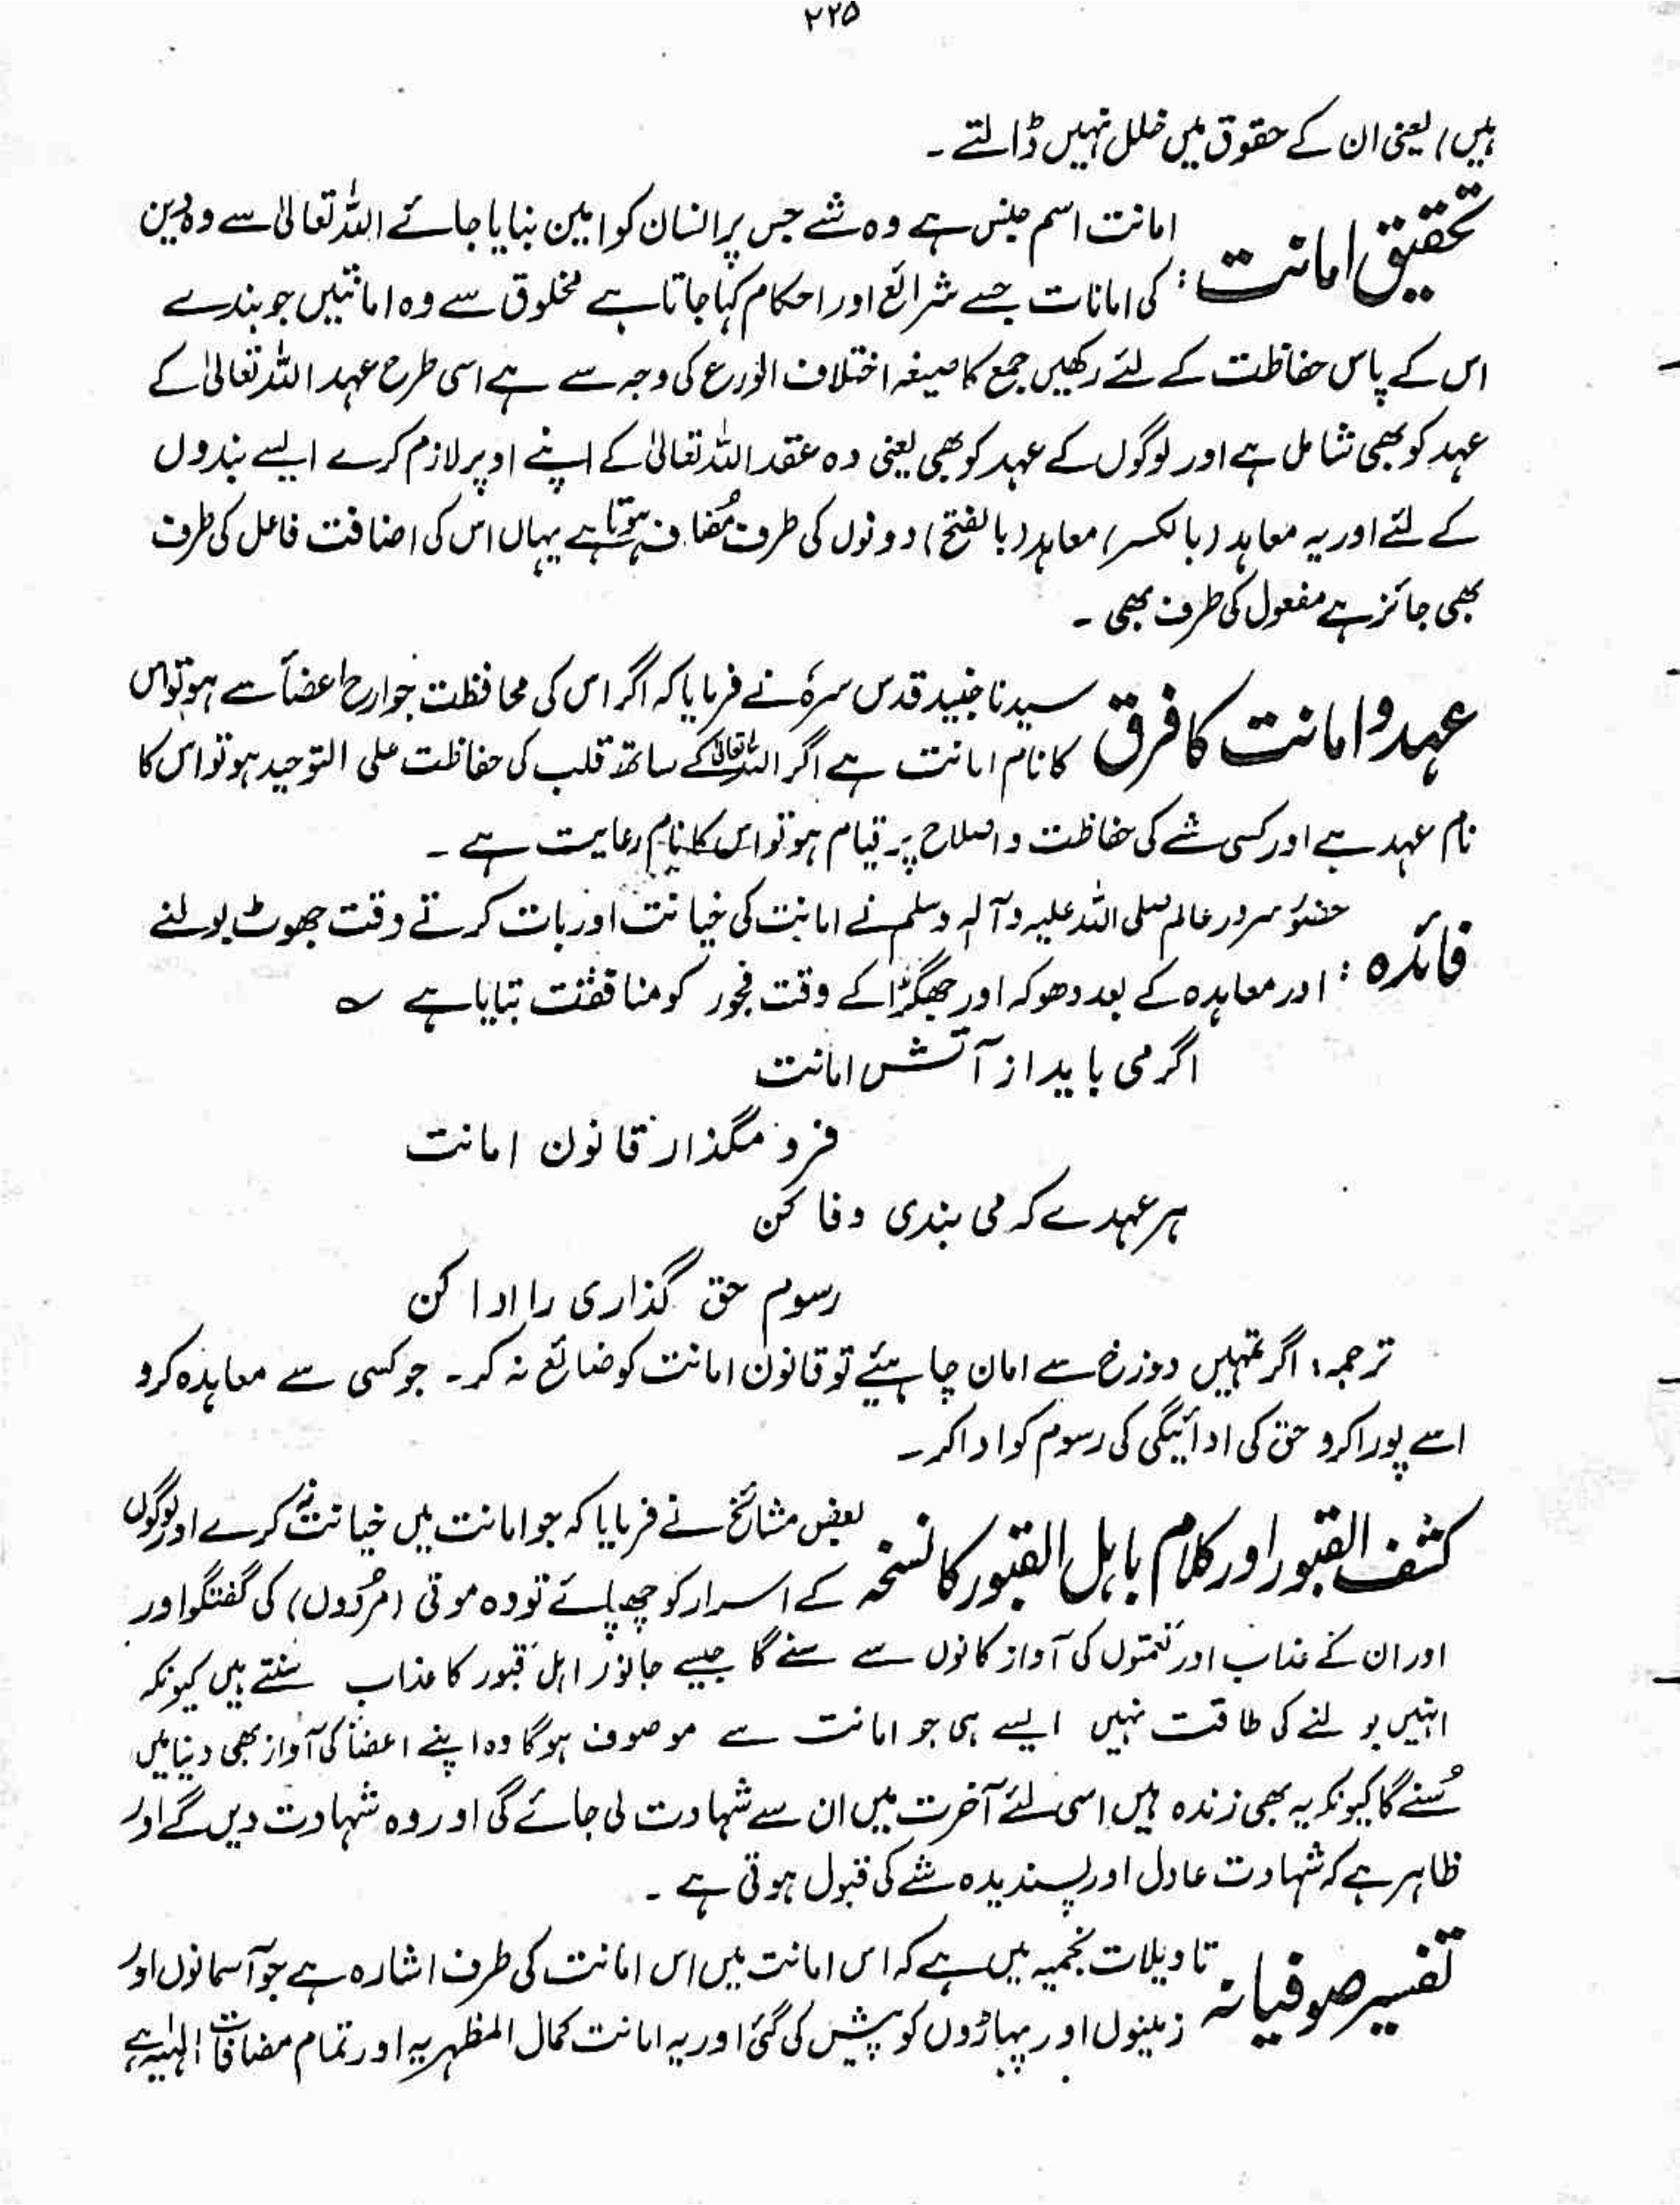 ۲۲۵
ہیں) یعنی ان کے حقوق میں خلل نہیں ڈالتے ۔
تحقیق امانت : امانت اسم جنس ہے وہ شے جس پر انسان کو امین بنایا جائے اللہ تعالیٰ سے وہ دین
کی امانات جسے شرائع اور احکام کہا جاتا ہے مخلوق سے وہ امانتیں جو بندے
اس کے پاس حفاظت کے لئے رکھیں جمع کا صیغہ اختلاف انورع کی وجہ سے ہے اسی طرح عہد اللہ تعالیٰ کے
عہد کو بھی شامل ہے اور لوگوں کے عہد کو بھی یعنی وہ عقد اللہ تعالیٰ کے اپنے اوپر لازم کرے ایسے بندوں
کے لئے اور یہ معاہد (بالکسر) معاہد (بالفتح) دونوں کی طرف مُضاف ہوتا ہے یہاں اس کی اضافت فاعل کی طرف
بھی جائز ہے مفعول کی طرف بھی ۔
عہد و امانت کا فرق سیدنا جنید قدس سرہٗ نے فرمایا کہ اگر اس کی محافظت جوارح اعضأ سے ہو تو اس
کا نام امانت ہے اگر اللہ تعالیٰ کے ساتھ قلب کی حفاظت علی التوحید ہو تو اس کا
نام عہد ہے اور کسی شے کی حفاظت و اصلاح پر قیام ہو تو اس کا نام رعایت ہے ۔
فائدہ : حضوُر سرور عالم صلی اللہ علیہ وآلہٖ وسلم نے امانت کی خیانت اور بات کرتے وقت جھوٹ بولنے
اور معاہدہ کے بعد دھوکہ اور جھگڑا کے وقت فجور کو منافقت بتایا ہے ؎
اگر می باید از آتش امانت
فرو مگذار قانون امانت
ہر عہدے کہ می بندی وفا کن
رسوم حق گذاری را ادا کن
ترجمہ : اگر تمہیں دوزخ سے امان چاہیئے تو قانون امانت کو ضائع نہ کر ۔ جو کسی سے معاہدہ کرو
اسے پورا کرو حق کی ادائیگی کی رسوم کو ادا کر ۔
کشف القبور اور کلام باہل القبور کا نسخہ بعض مشائخ نے فرمایا کہ جو امانت میں خیانت نہ کرے اور لوگوں
کے اسرار کو چھپائے تو وہ موتی (مُردوں) کی گفتگو اور
اور ان کے عذاب اور نعمتوں کی آواز کانوں سے سنے گا جیسے جانور اہل قبور کا عذاب سنتے ہیں کیونکہ
انہیں بولنے کی طاقت نہیں ایسے ہی جو امانت سے موصوف ہوگا وہ اپنے اعضأ کی آواز بھی دنیا میں
سُنے گا کیونکہ یہ بھی زندہ ہیں اسی لئے آخرت میں ان سے شہادت لی جائے گی اور وہ شہادت دیں گے اور
ظاہر ہے کہ شہادت عادل اور پسندیدہ شے کی قبول ہوتی ہے ۔
تفسیر صوفیانہ تاویلات نجمیہ میں ہے کہ اس امانت میں اس امانت کی طرف اشارہ ہے جو آسمانوں اور
زمینوں اور پہاڑوں کو پیش کی گئی اور یہ امانت کمال المظہریہ اور تمام مضافات الہٰیہ ہے